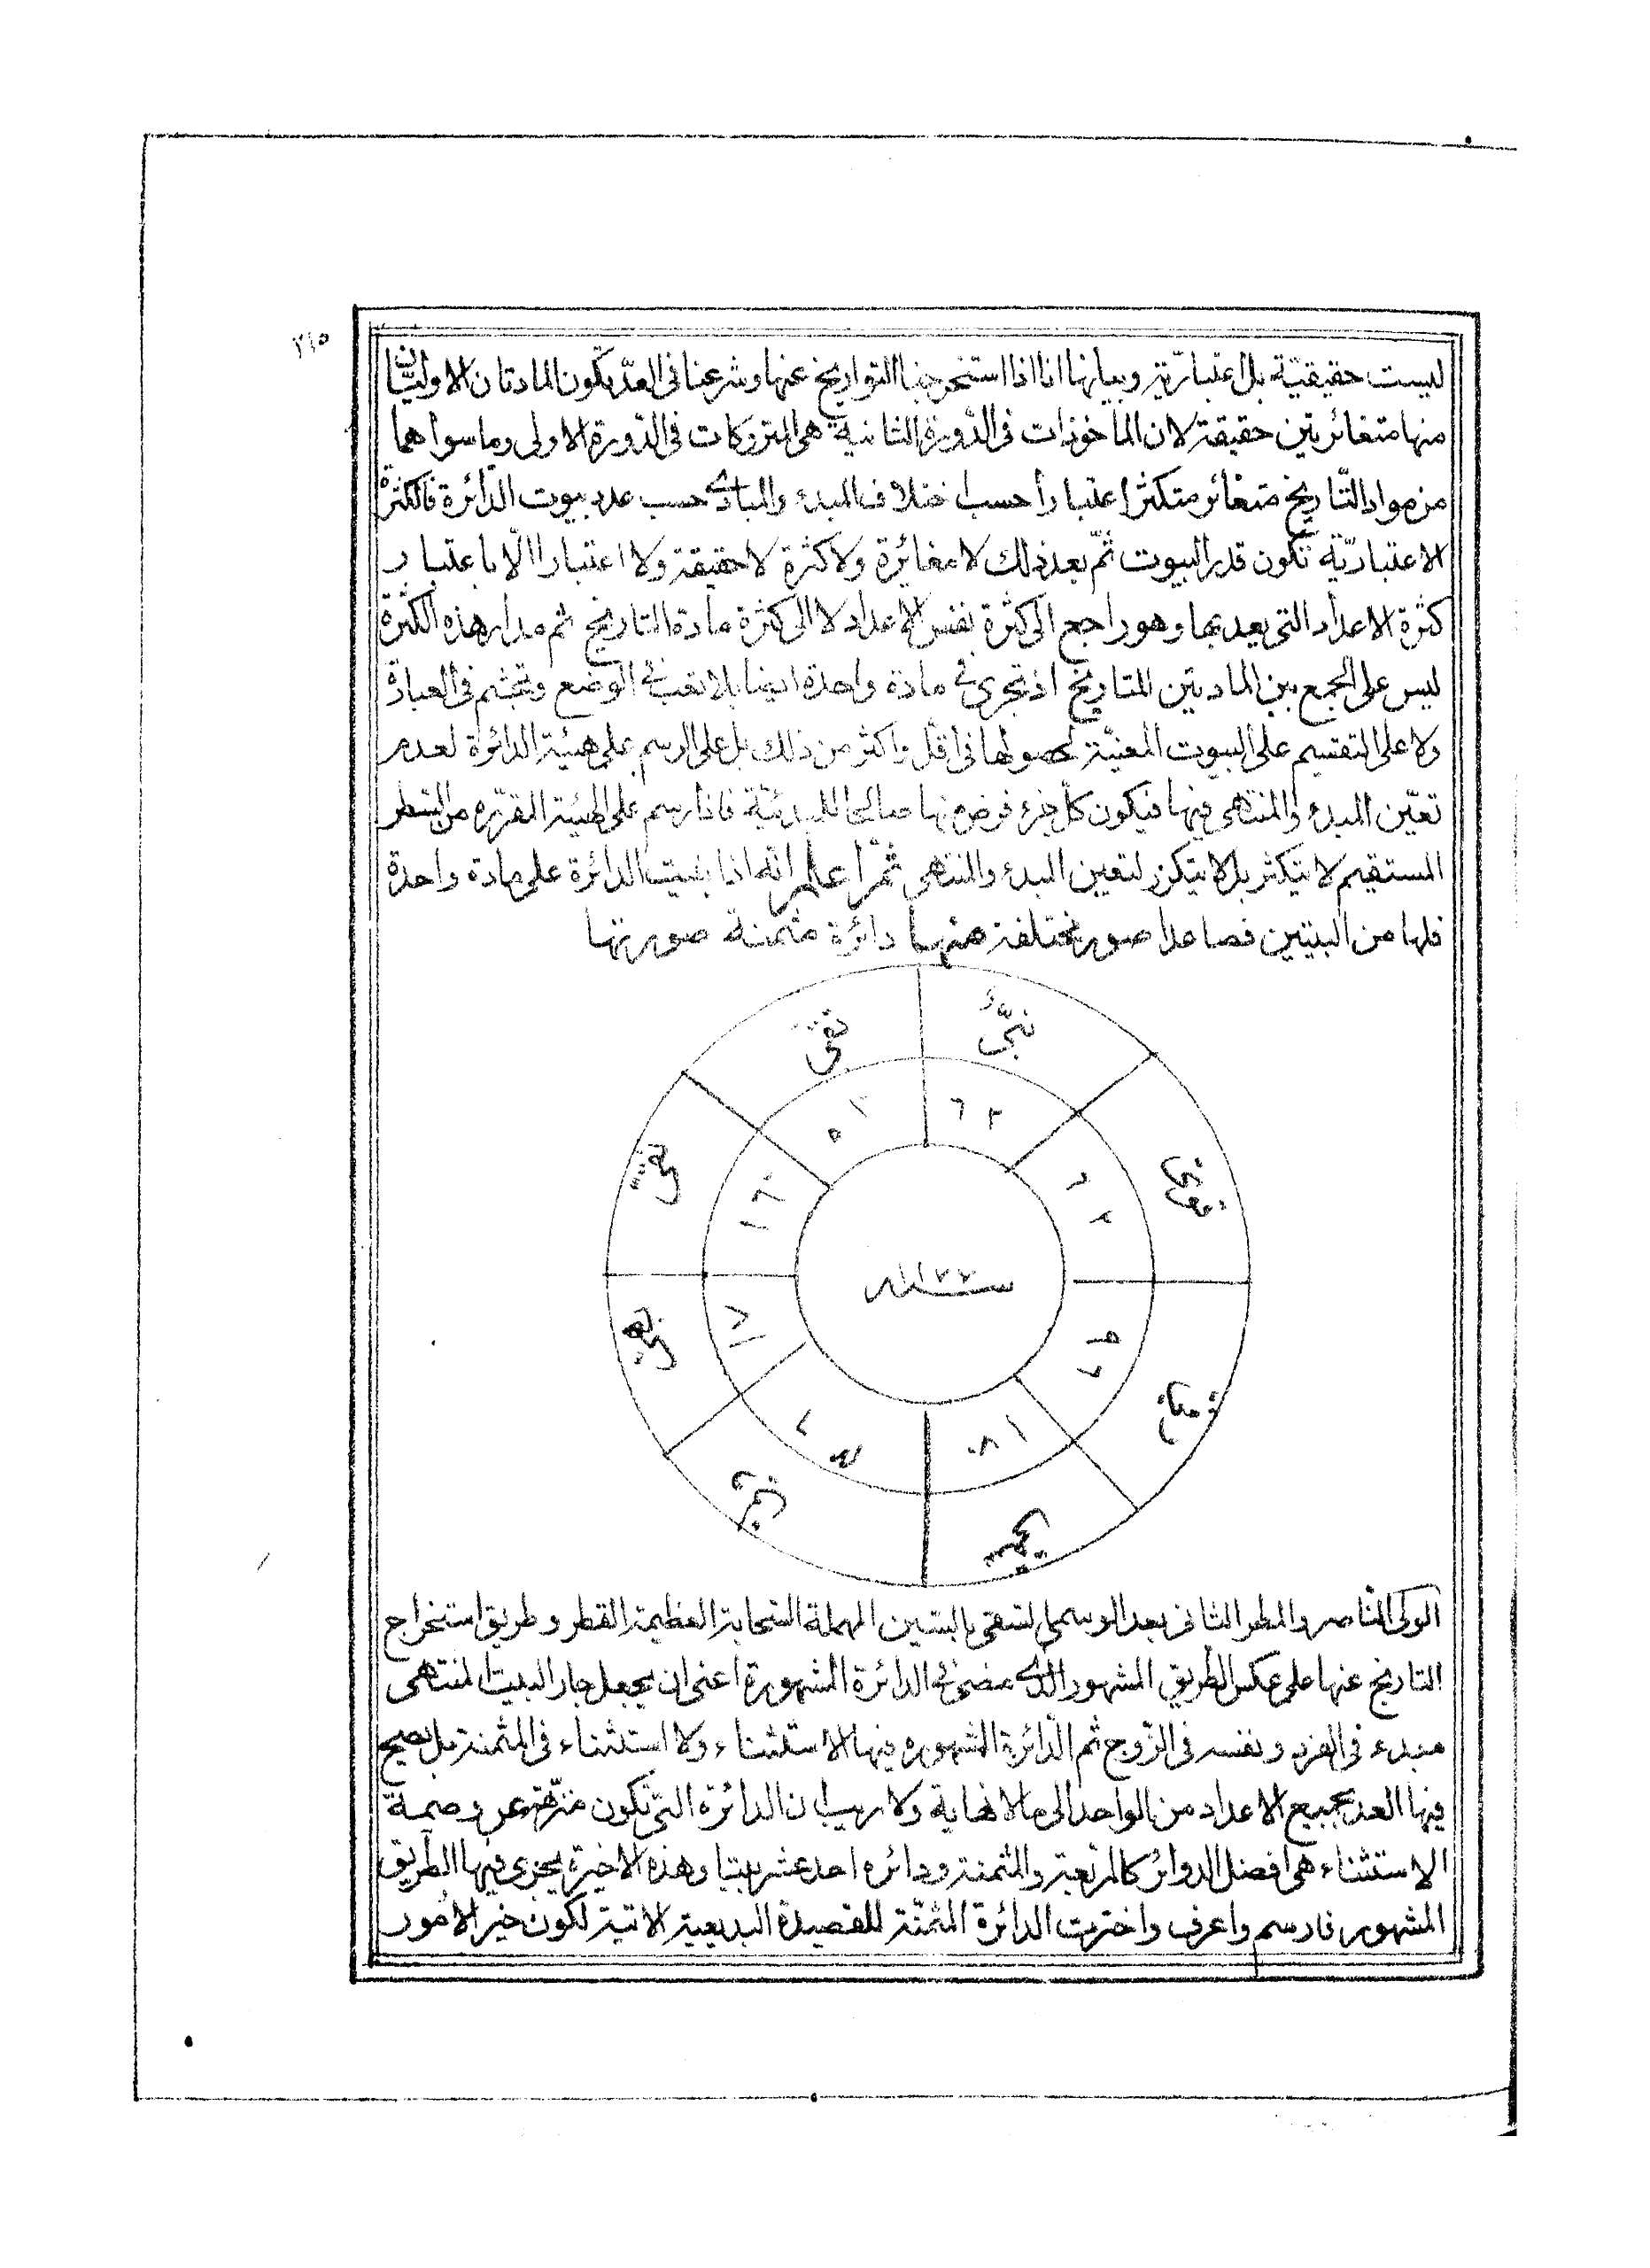 ٣١٥
ليست حقيقيّة بل اعتباريّة وبيانها انا اذا استخرجنا التواريخ عنها وشرعنا فى العدّ يكون المادتان الاوليتان
منها متغائرتين حقيقة لان المأخوذات فى الدّورة الثانية هى المتروكات فى الدّورة الاولى وما سواهما
من مواد التّاريخ متغائر متكثر اعتبارا حسب اختلاف المبدء والمبادى حسب عدد بيوت الدّائرة فالكثرة
الاعتباريّة تكون قدر البيوت ثمّ بعد ذلك لا مغائرة ولا كثرة لا حقيقة ولا اعتبارا الّا باعتبار
كثرة الاعداد التى يعد بها وهو راجع الى كثرة نفس الاعداد لا الى كثرة مادة التاريخ ثم مدار هذه الكثرة
ليس على الجمع بين المادتين للتاريخ اذ تجرى فى مادة واحدة ايضا بلا تعب فى الوضع وتجشم فى العبارة
ولا على التقسيم على البيوت المعنيّة لحصولها فى اقل واكثر من ذلك بل على الرسم على هيئة الدائرة لعدم
تعيّن المبدء والمنتهى فيها فيكون كل جزء فرض منها صالحا للمبدئيّة فاذا رسم على الهيئة المقرّره من السطر
المستقيم لا يتكثر بل لا يتكرر لتعين المبدء والمنتهى ثمّ اعلم انّه اذا بنيت الدائرة على مادة واحدة
فلها من البيتين فصاعدا صور مختلفة منها دائرة مثمنة صورتها
٦٣
١١٧٧
الولى الناصر والمطر الثانى بعد الوسمى لتسقى بالسّين المهملة السّحابة العظيمة القطر وطريق استخراج
التاريخ عنها على عكس الطريق المشهور الذى مضى فى الدائرة المشهورة اعنى ان يجعل جار البيت المنتهى
مبدء فى الفرد ونفسه فى الزّوج ثم الدّائرة المشهوره فيها الاستثناء ولا استثناء فى المثمنة بل يصح
فيها العد بجميع الاعداد من الواحد الى ما لا نهاية ولا ريب ان الدائرة التى تكون منزّهة عن وصمة
الاستثناء هى افضل الدوائر كالمربعة والمثمنة ودائره احد عشر بيتا وهذه الاخيرة يجرى فيها الطريق
المشهور فارسم واعرف واخترت الدائرة المثمّنة للقصيدة البديعية الاتية لكون خير الامور